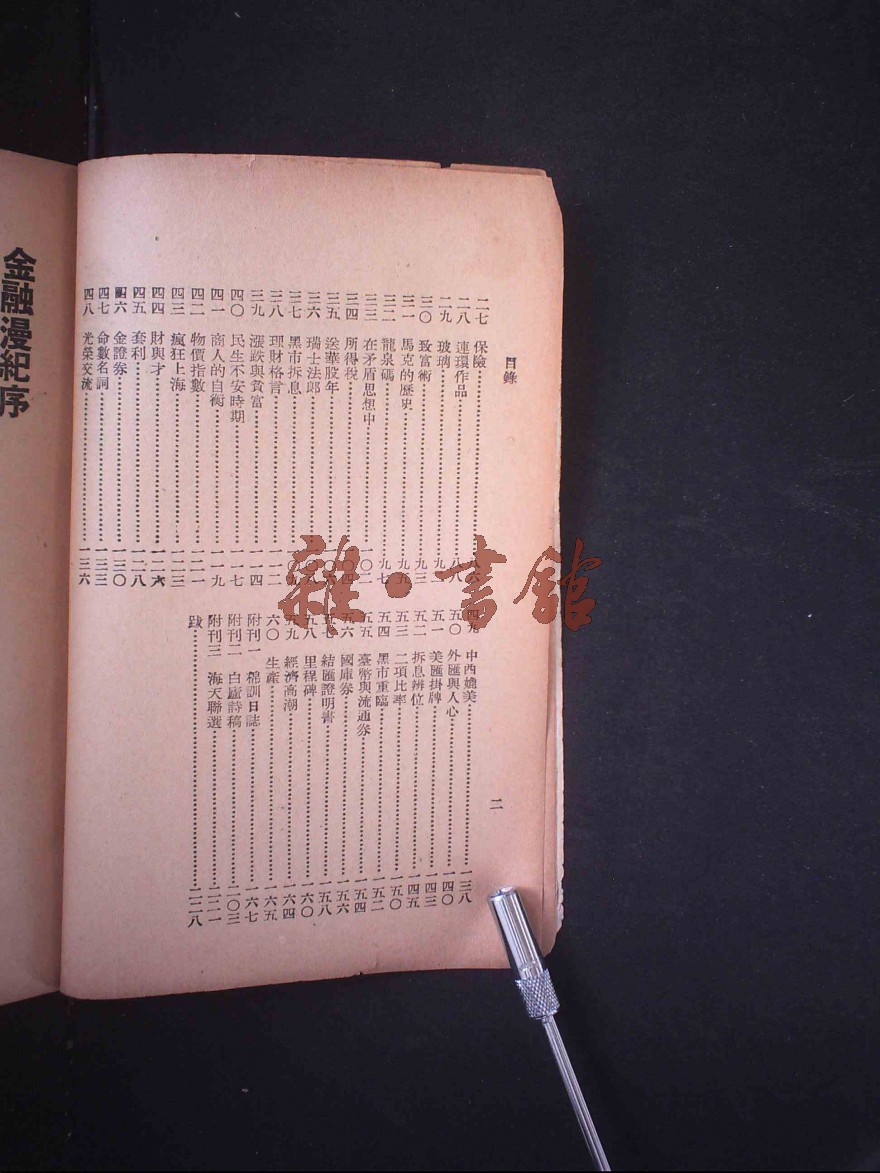 目錄
二
二七　保險……八六
二八　連環作品……八八
二九　玻璃……九一
三〇　致富術……九三
三一　馬克的歷史……九五
三二　龍泉碼……九七
三三　在矛盾思想中……一〇二
三四　所得稅……一〇四
三五　送華股年……一〇六
三六　瑞士法郎……一〇八
三七　黑市拆息……一〇九
三八　理財格言……一一二
三九　漲跌與貧富……一一四
四〇　民生不安時期……一一七
四一　商人的自衡……一一九
四二　物價指數……一二一
四三　瘋狂上海……一二三
四四　財與才……一二六
四五　套利……一二八
四六　金證券……一三〇
四七　命數名詞……一三三
四八　光榮交流……一三六
四九　中西媲美……一三八
五〇　外匯與人心……一四〇
五一　美匯掛牌……一四三
五二　拆息辨位……一四五
五三　二項比率……一五〇
五四　黑市重臨……一五二
五五　臺幣與流通券……一五四
五六　國庫券……一五六
五七　結匯證明書……一五八
五八　里程碑……一六〇
五九　經濟高潮……一六四
六〇　生產……一六五
附刊一　棉訓日誌……一六七
附刊二　白廬詩稿……二〇三
附刊三　海天聯選……二二一
跋……二二八
金融漫紀序
雜·書館